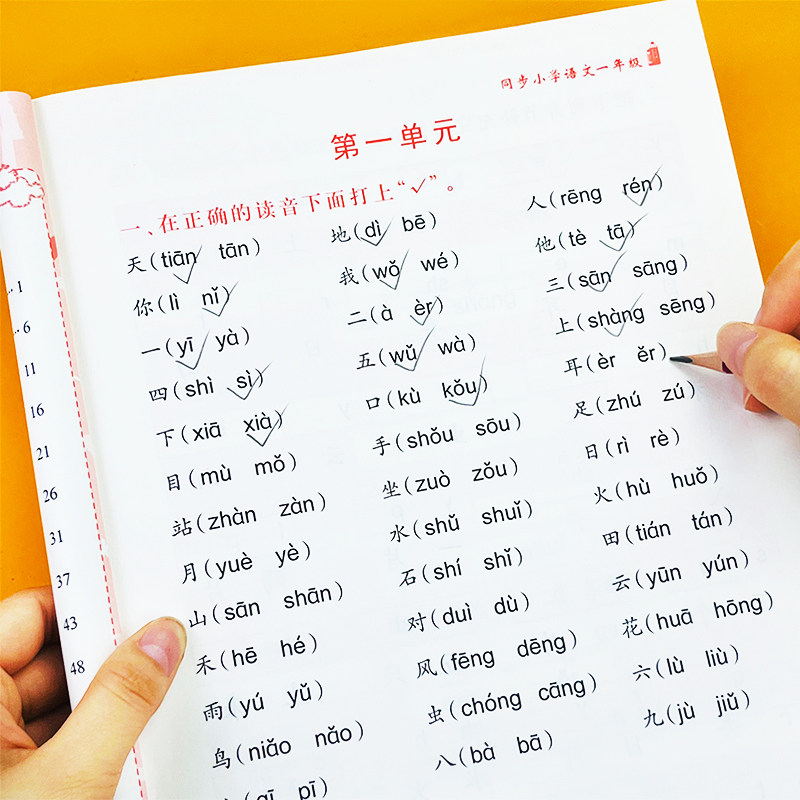 同步小学语文一年级
第一单元
一、在正确的读音下面打上“✓”。
天(tiān tān) 地(dì bē) 人(rēng rén)
你(lì nǐ) 我(wǒ wé) 他(tè tā)
一(yī yà) 二(à èr) 三(sān sāng)
四(shì sì) 五(wǔ wà) 上(shàng sēng)
下(xiā xià) 口(kù kǒu) 耳(èr ěr)
目(mù mǒ) 手(shǒu sōu) 足(zhú zú)
站(zhàn zàn) 坐(zuò zǒu) 日(rì rè)
月(yuè yè) 水(shǔ shuǐ) 火(hù huǒ)
山(sān shān) 石(shí shǐ) 田(tián tán)
禾(hē hé) 对(duì dù) 云(yūn yún)
雨(yú yǔ) 风(fēng dēng) 花(huā hōng)
鸟(niǎo nǎo) 虫(chóng cāng) 六(lù liù)
(qī pī) 八(bà bā) 九(jù jiǔ)
1
6
11
16
21
26
31
37
43
48